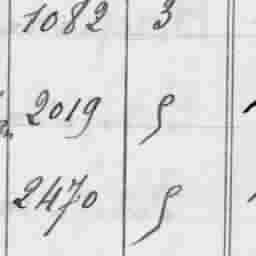 1082 3
2019 9
2470 9